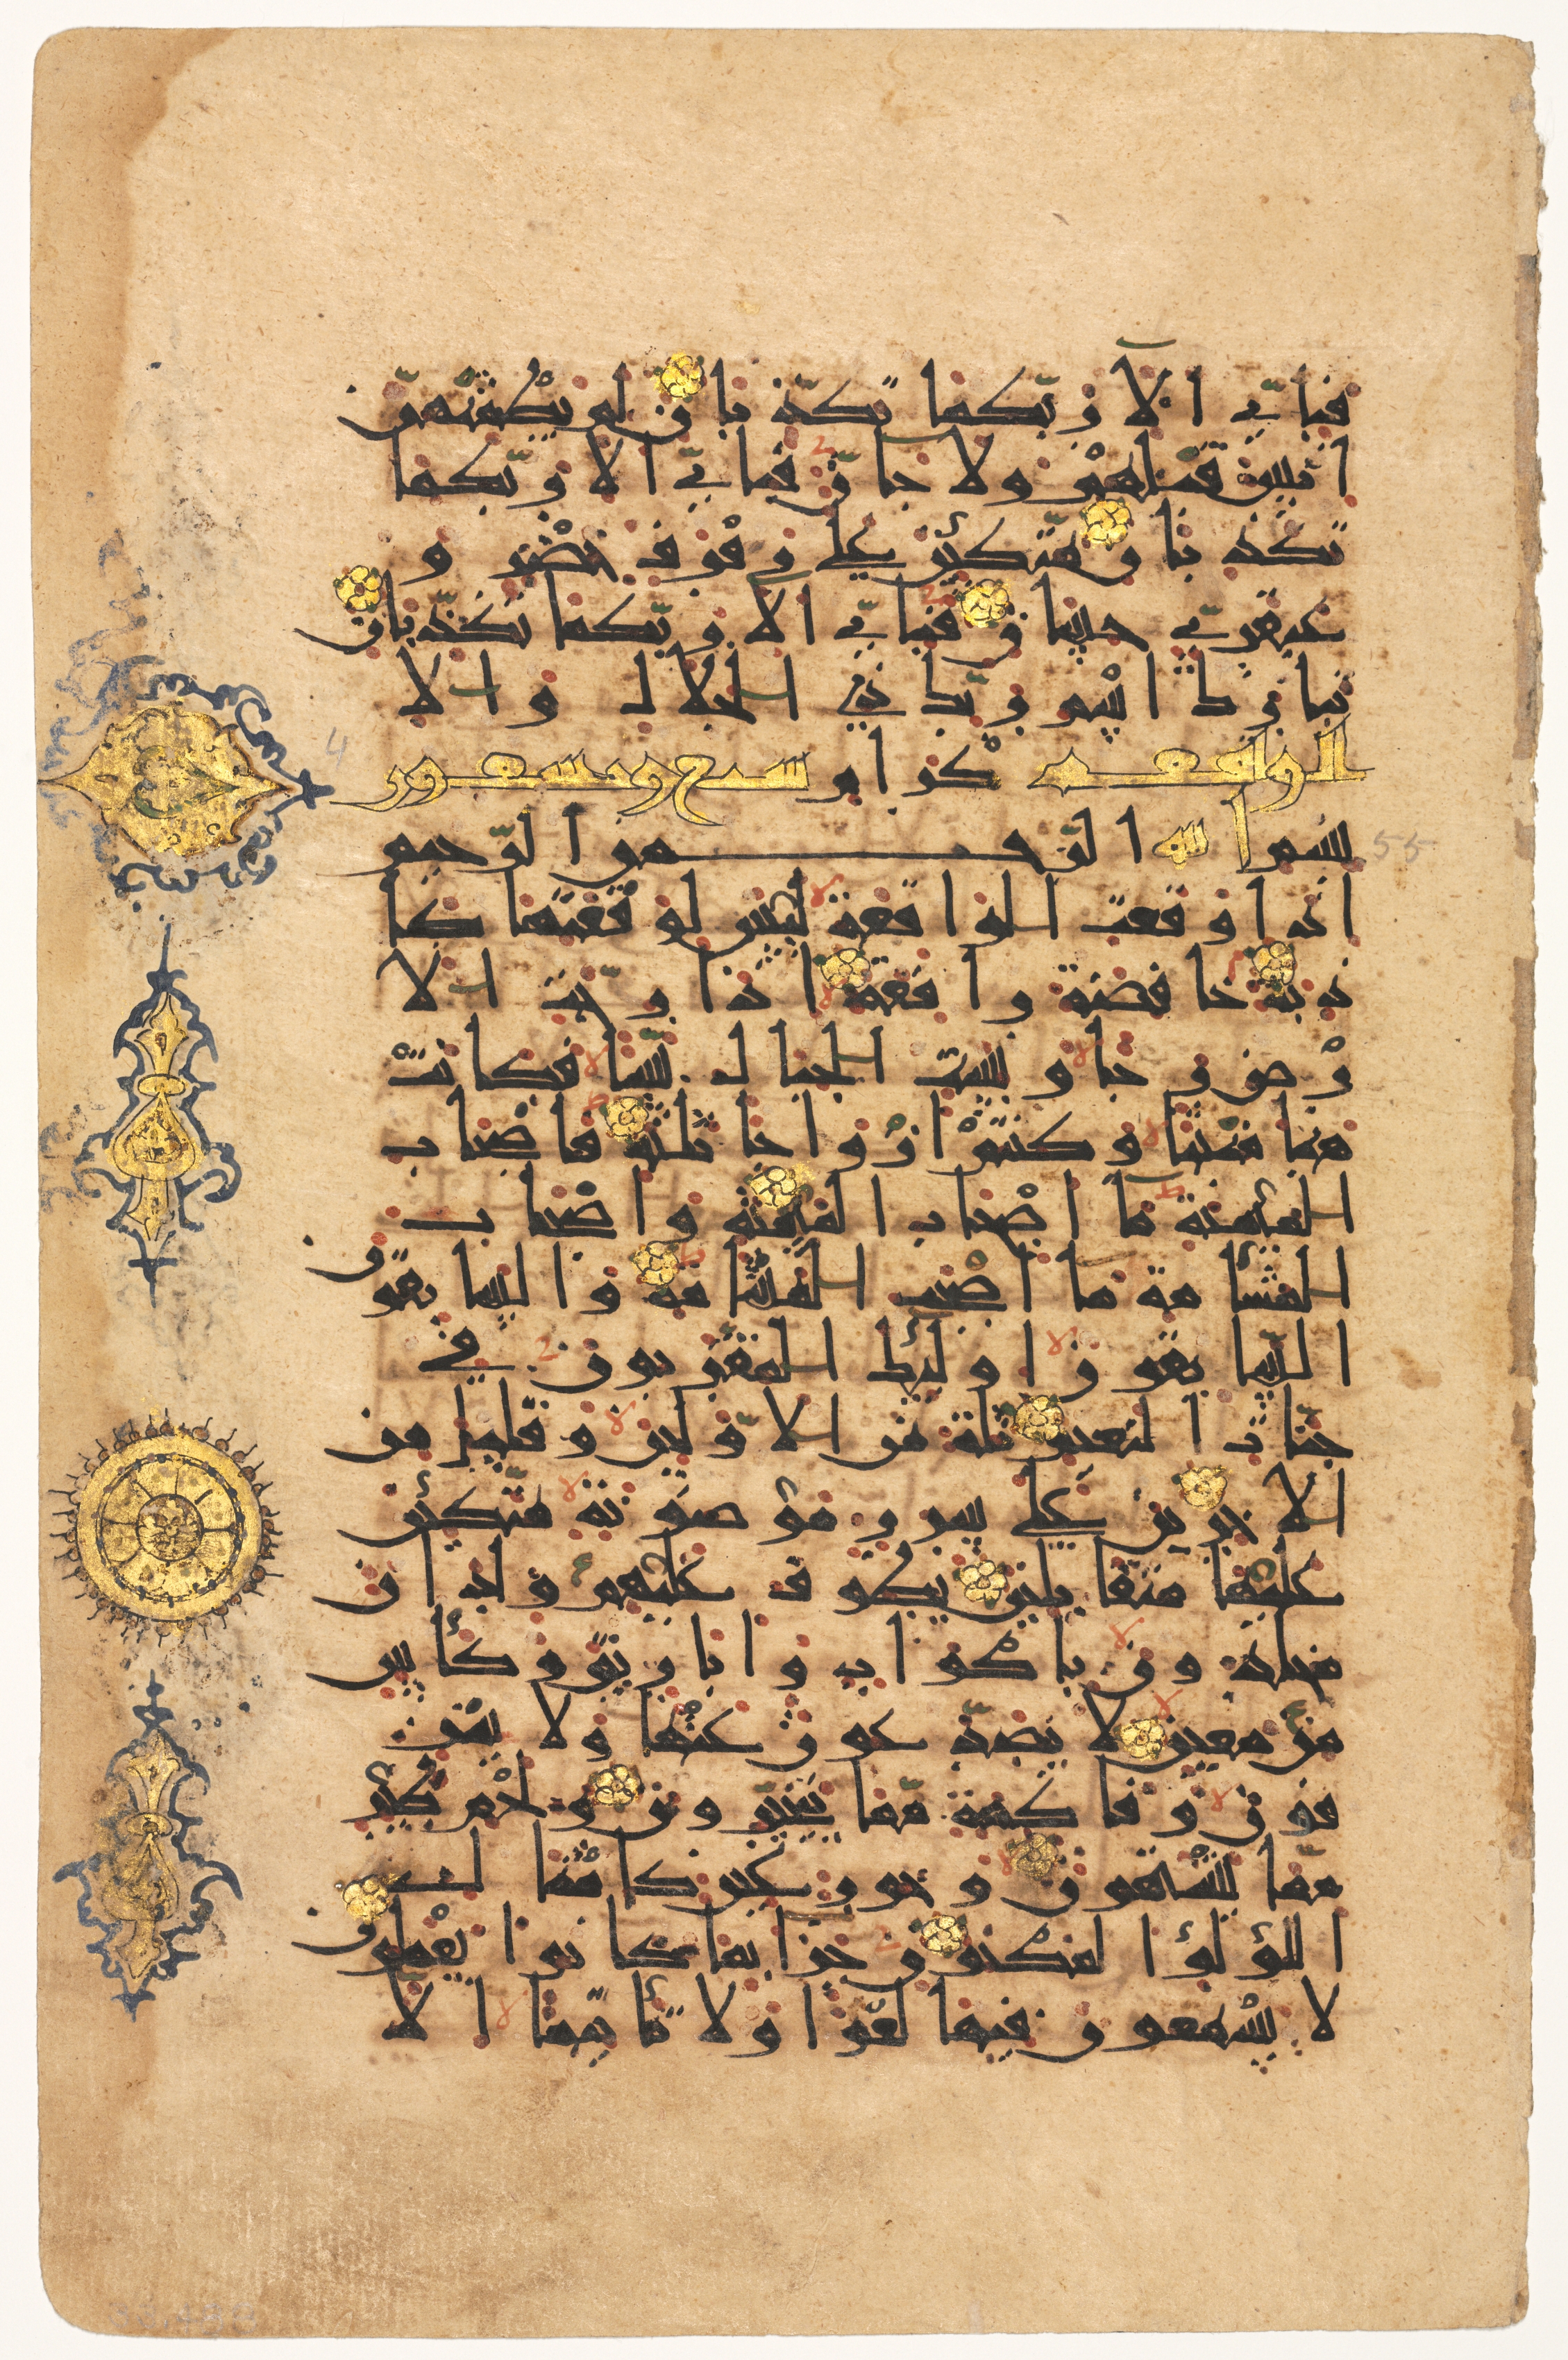 فبأيّ الآ ربّكما تكذّبان لم يطمثهنّ
انس قبلهم ولا جانّ فبأيّ الآ ربّكما
تكذّبان متّكئين على رفرف خضر و
عبقريّ حسان فبأيّ الآ ربّكما تكذّبان
تبارك اسم ربّك ذي الجلال والا
الواقعه كرام سبع وتسعون
بسم الله الرّحمن الرّحيم
اذا وقعت الواقعة ليس لوقعتها كا
ذبة خافضة رافعة اذا رجّت الا
رْض رجّا وبسّت الجبال بسّا فكانت
هبا منبثّا وكنتم ازواجا ثلثة فاصحاب
الميمنة ما اصحاب الميمنة واصحاب
المشأمة ما اصحب المشأمة والسابقون
السّابقون اوليك المقرّبون في
جنّات النعيم ثلّة من الاوّلين وقليل من
الاخرين على سرر موضونة متّكئين
عليها متقابلين يطوف عليهم ولدان
مخلدون باكواب واباريق وكأس
من معين لا يصدّعون عنها ولا ينز
فون وفاكهة ممّا يتخيّرون ولحم طير
ممّا يشتهون وحور عين كامثال
اللؤلؤا لمكنون جزا بما كانوا يعملون
لا يسمعون فيها لغوا ولا تأثيما الا
55
4